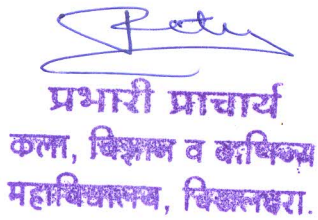 प्रभारी प्राचार्य
कला, विज्ञान व वाणिज्य
महाविद्यालय, चिखलदरा.